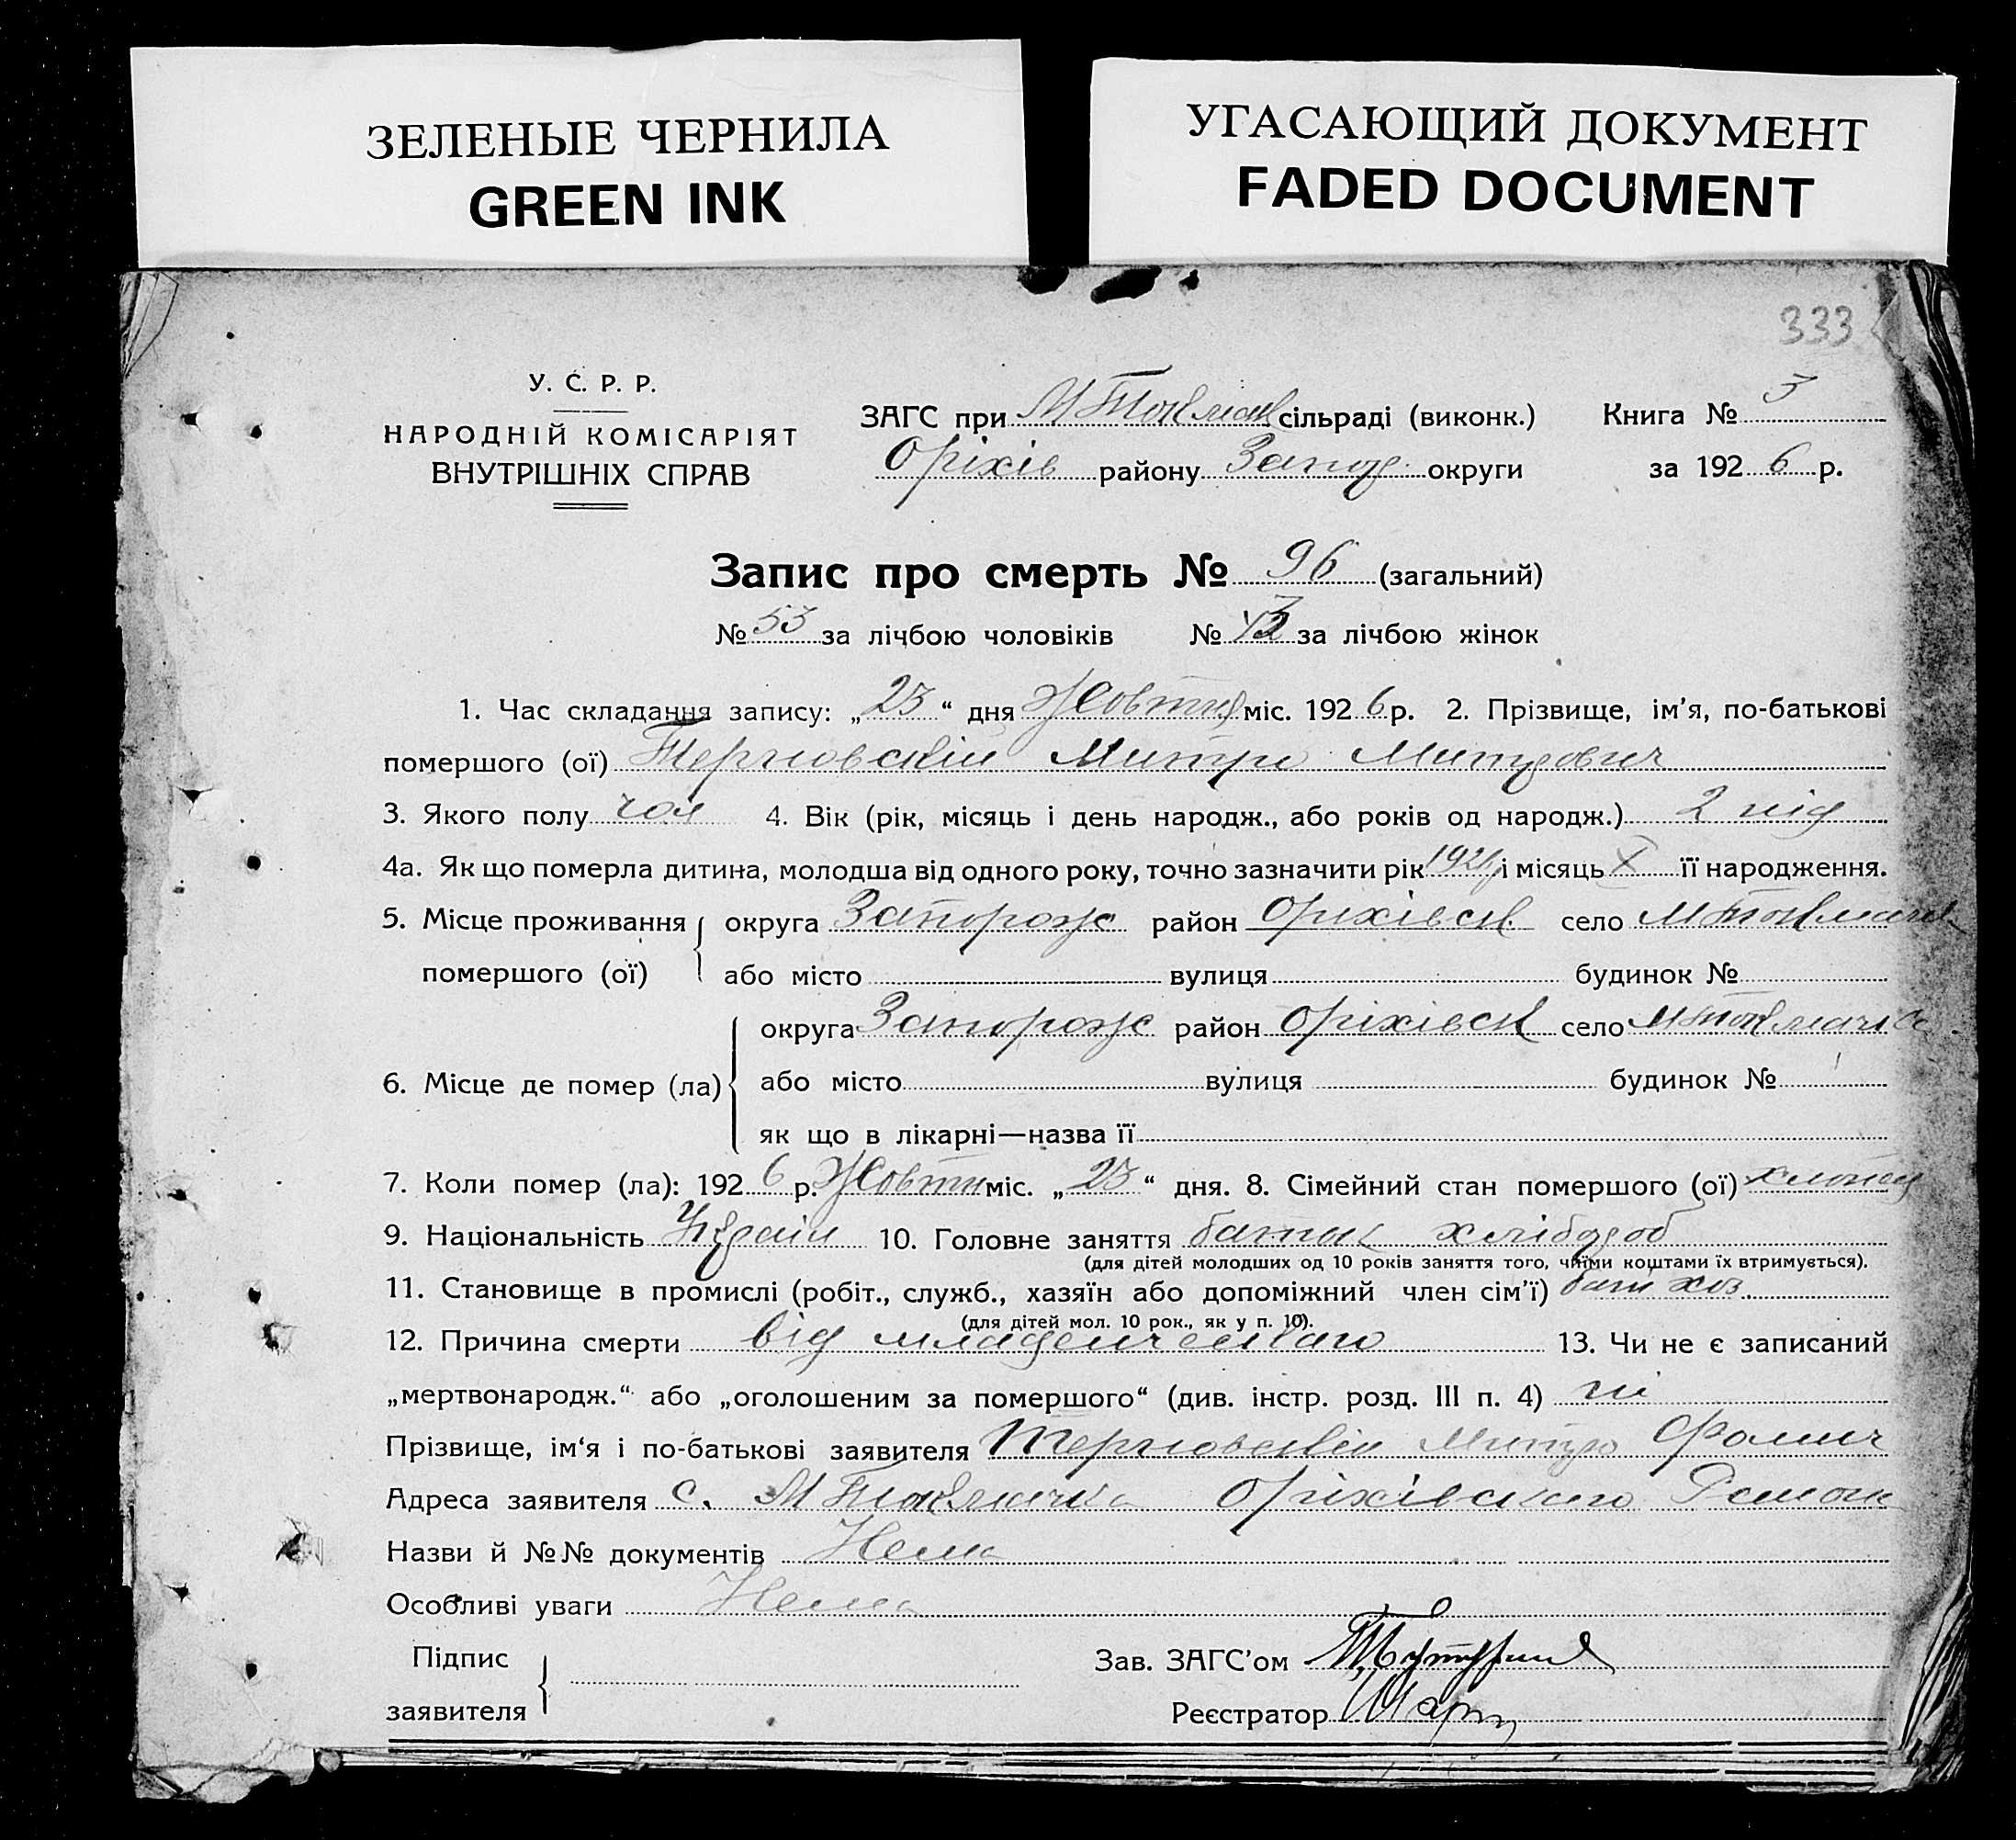 ЗЕЛЕНЫЕ ЧЕРНИЛА
GREEN INK
УГАСАЮЩИЙ ДОКУМЕНТ
FADED DOCUMENT
333
У. С. Р. Р.
НАРОДНІЙ КОМІСАРІЯТ
ВНУТРІШНІХ СПРАВ
ЗАГС при М Токмак сільраді (виконк.) Книга № 3
Оріхів району Запор округи за 1926 р.
Запис про смерть № 96 (загальний)
№ 53 за лічбою чоловіків № 43 за лічбою жінок
1. Час складання запису: „23“ дня Жовтня міс. 1926 р. 2. Прізвище, ім'я, по-батькові
помершого (ої) Терновский Митро Митрович
3. Якого полу чол 4. Вік (рік, місяць і день народж., або років од народж.) 2 нід
4а. Як що померла дитина, молодша від одного року, точно зазначити рік 1926 і місяць X її народження.
5. Місце проживання помершого (ої) округа Запорож район Оріхівськ село М Токмачка
або місто вулиця будинок №
6. Місце де помер (ла) округа Запорож район Оріхівськ село М Токмачка
або місто вулиця будинок №
як що в лікарні—назва її
7. Коли помер (ла): 1926 р. Жовтн міс. „23“ дня. 8. Сімейний стан помершого (ої) хлопец
9. Національність Україн 10. Головне заняття батьк хлібороб
(для дітей молодших од 10 років заняття того, чиїми коштами їх втримується).
11. Становище в промислі (робіт., служб., хазяїн або допоміжний член сім'ї) бать хоз
(для дітей мол. 10 рок., як у п. 10).
12. Причина смерти від младенческаго 13. Чи не є записаний
„мертвонародж.“ або „оголошеним за помершого“ (див. інстр. розд. III п. 4) ні
Прізвище, ім'я і по-батькові заявителя Терновский Митро Фомич
Адреса заявителя с. М Токмачка Оріхівскаго Району
Назви й №№ документів Нема
Особливі уваги Нема
Підпис заявителя
Зав. ЗАГС'ом
Реєстратор